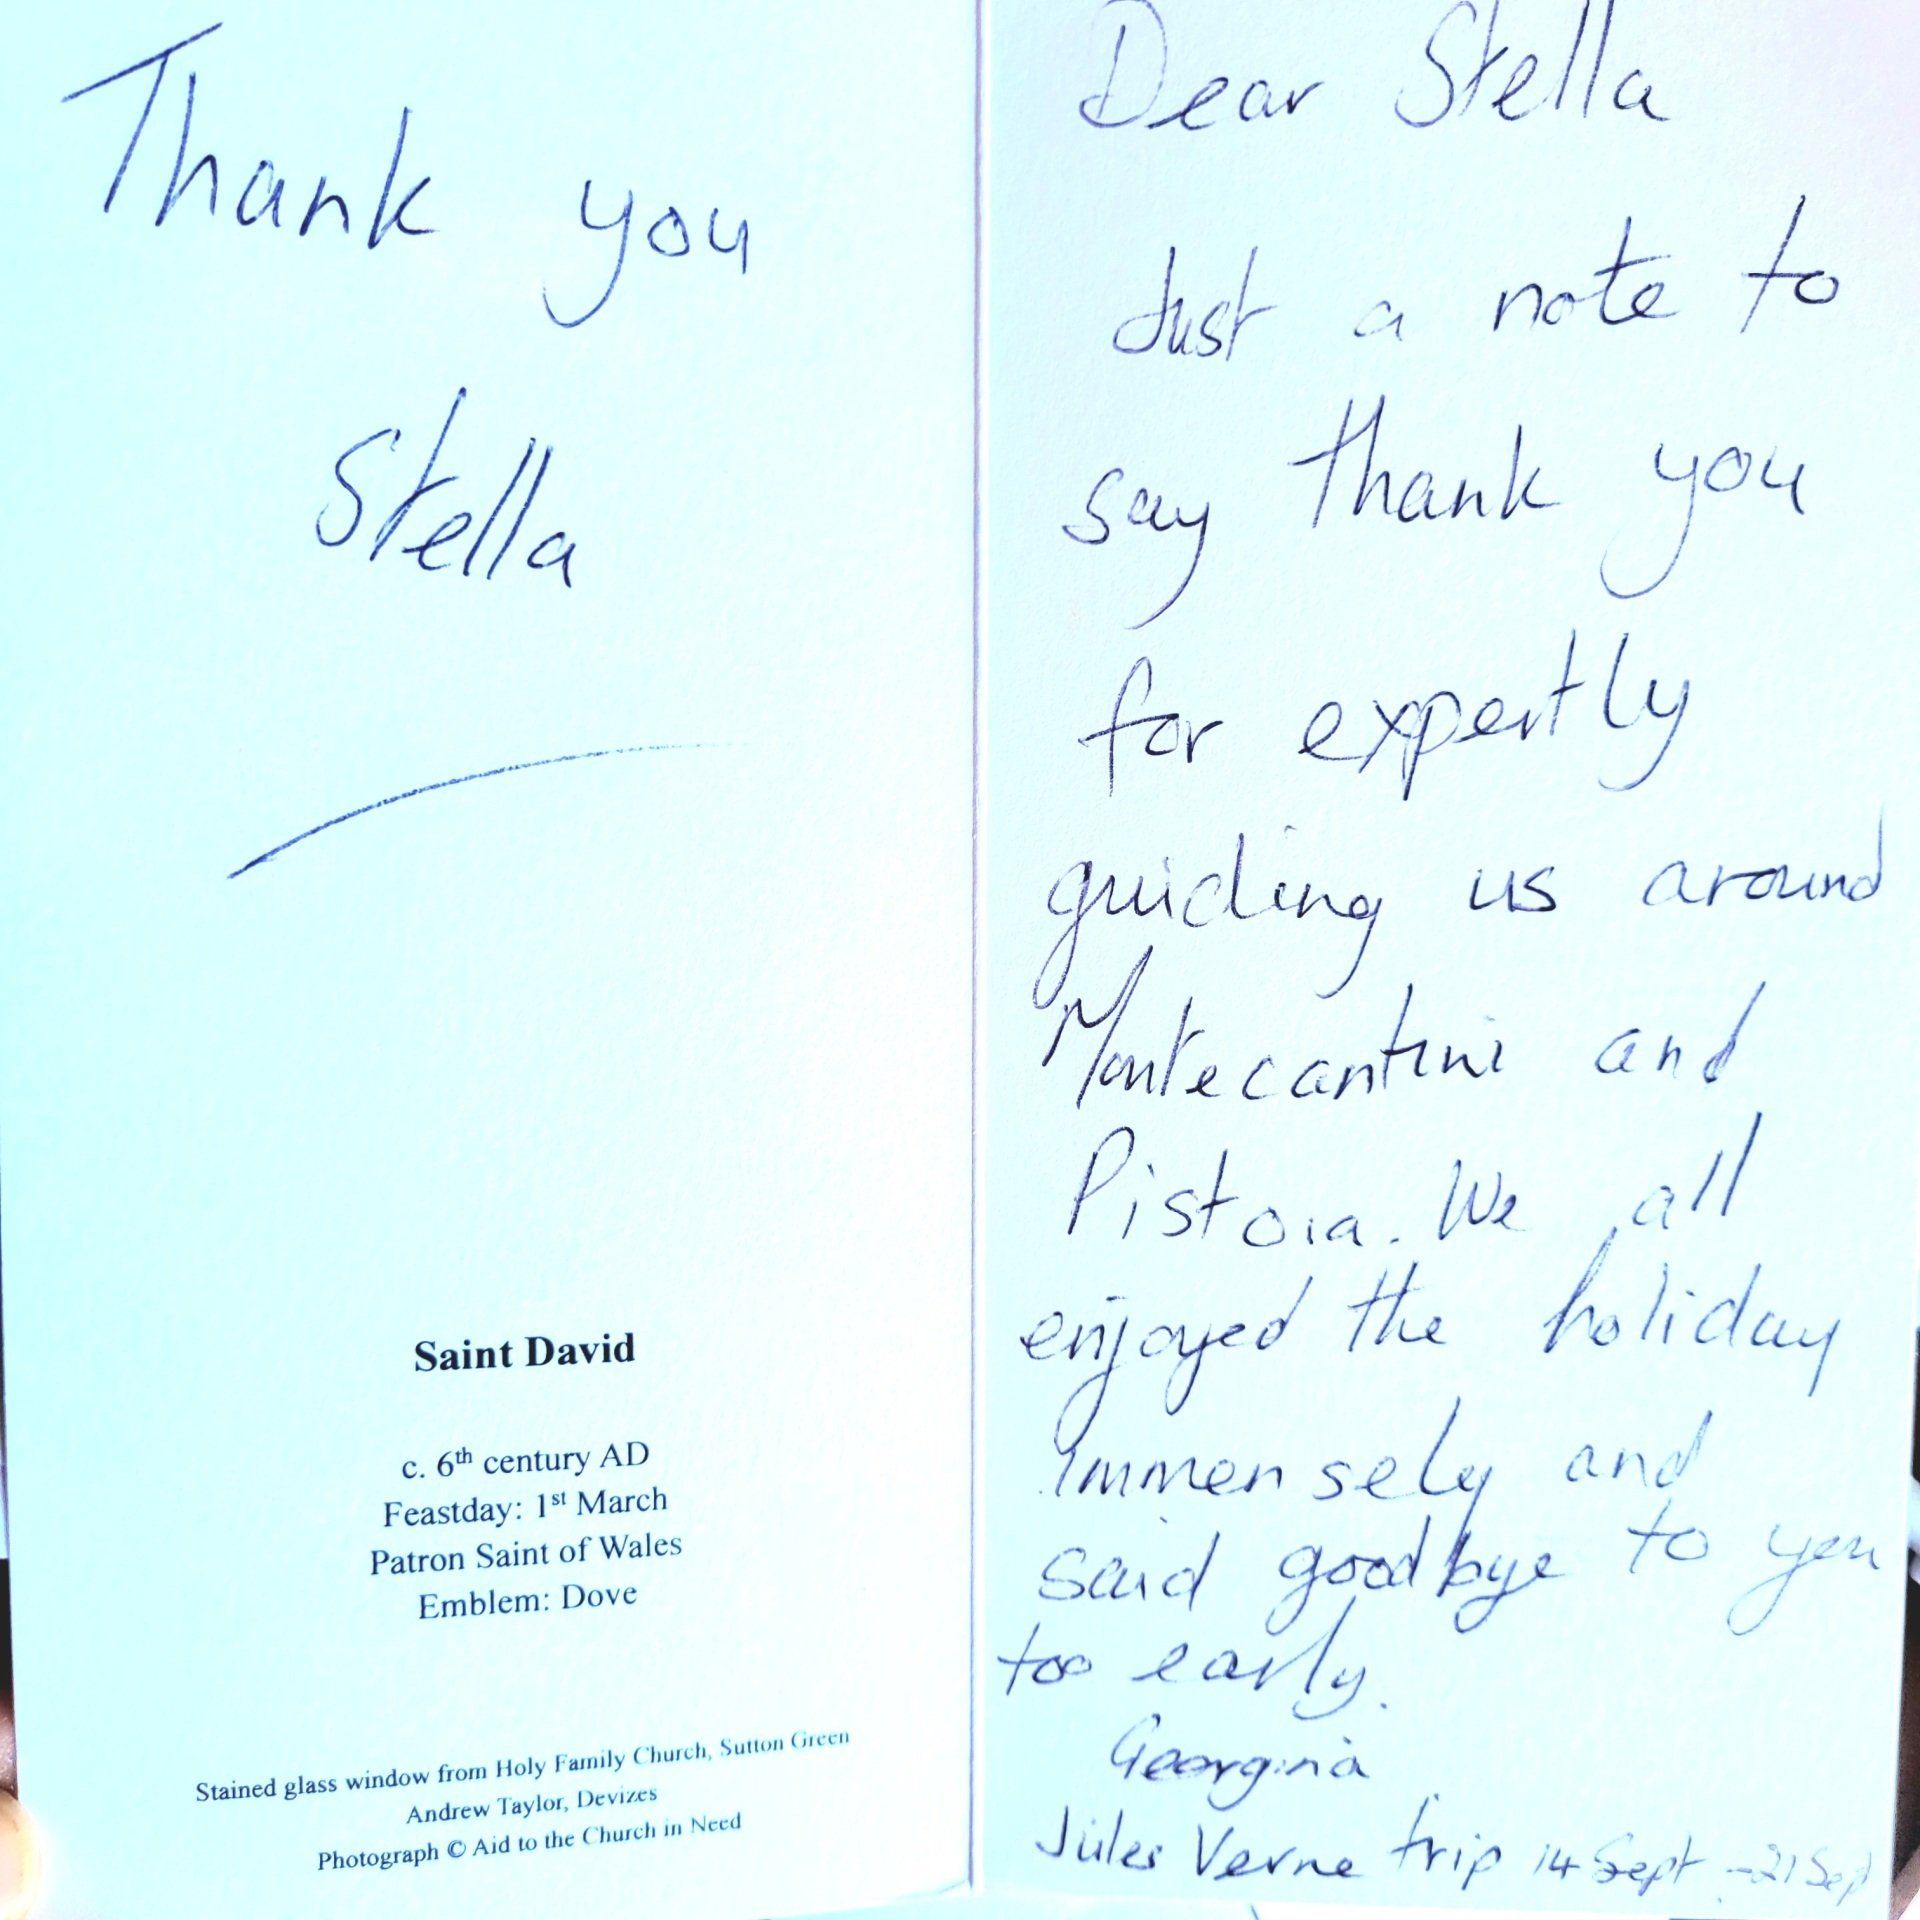 Thank you
Stella
Saint David
c. 6th century AD
Feastday: 1st March
Patron Saint of Wales
Emblem: Dove
Stained glass window from Holy Family Church, Sutton Green
Andrew Taylor, Devizes
Photograph © Aid to the Church in Need
Dear Stella
Just a note to
say thank you
for expertly
guiding us around
Montecantini and
Pistoia. We all
enjoyed the holiday
immensely and
said goodbye to you
too early.
Georgina
Jules Verne trip 14 Sept - 21 Sep